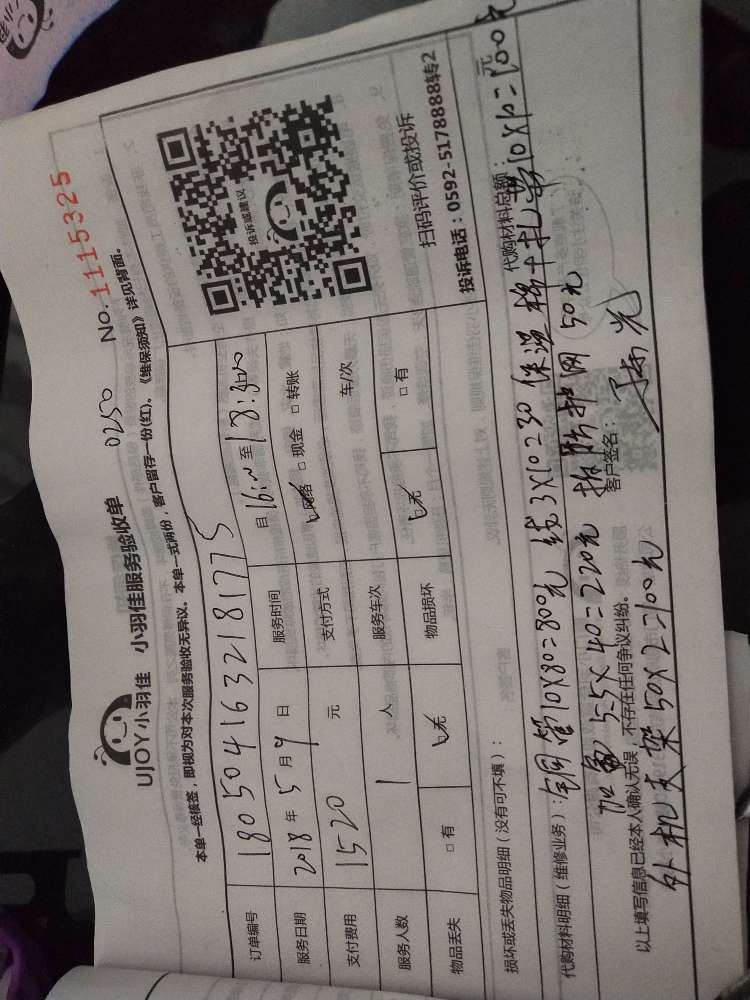 UJOY小羽佳 小羽佳服务验收单 0250 No.:1115325
本单一经接签，即视为对本次服务验收无异议。本单一式两份，客户留存一份(红)。《维保须知》详见背面。
订单编号 180504163218177 5
服务日期 2018年5月9日 服务时间 自16:00至18:30
支付费用 1520元 支付方式 网络 □现金 □转账
服务人数 1人 服务车次 车/次
物品丢失 □有 □无 物品损坏 □无 □有
投诉或建议
扫码评价或投诉
投诉电话：0592-5178888转2
损坏或丢失物品明细（没有可不填）：
代购材料明细（维修业务）： 代购材料总额： 元
铜管10X80=800元 线3X10=30 保温棉十扎带10X10=100元
加氟5.5X40=220元 拆防护网50元
以上填写信息已经本人确认无误，不存在任何争议纠纷。 客户签名：
外机支架50X2=100元